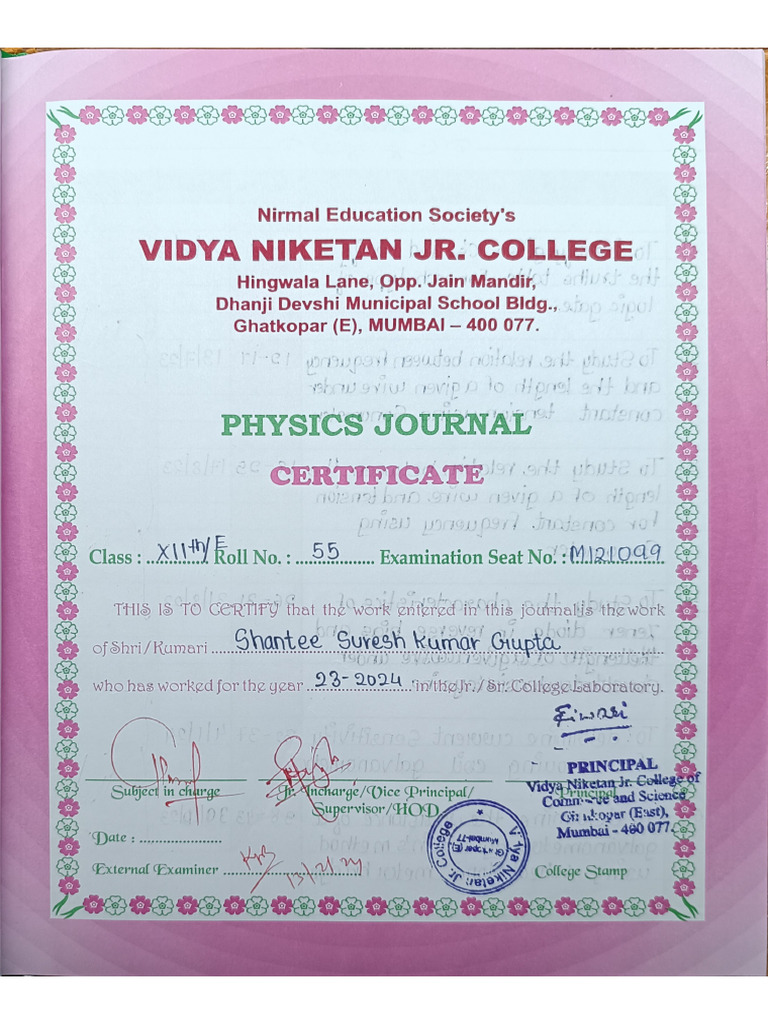 Nirmal Education Society's
VIDYA NIKETAN JR. COLLEGE
Hingwala Lane, Opp. Jain Mandir,
Dhanji Devshi Municipal School Bldg.,
Ghatkopar (E), MUMBAI – 400 077.
PHYSICS JOURNAL
CERTIFICATE
Class : XIIth/E Roll No. : 55 Examination Seat No. : M121099
THIS IS TO CERTIFY that the work entered in this journal is the work
of Shri/Kumari Shantee Suresh Kumar Gupta
who has worked for the year 23-2024 in the Jr. / Sr. College Laboratory.
Subject in charge
Jr. Incharge/Vice Principal/
Supervisor/HOD
Principal
PRINCIPAL
Vidya Niketan Jr. College of
Commerce and Science
Ghatkopar (East),
Mumbai - 400 077.
Date :
External Examiner 13/2/24
Vidya Niketan Jr. College
Ghatkopar (E)
Mumbai-77
College Stamp